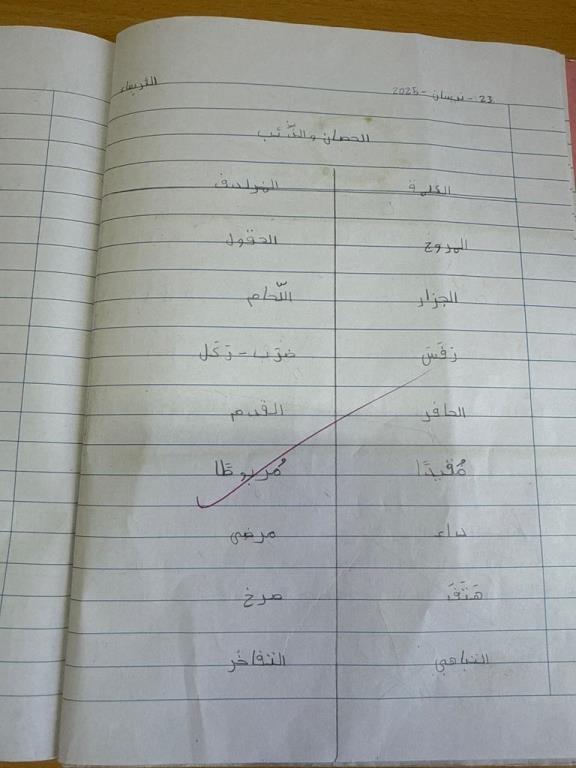 23 - نيسان - 2025 الاربعاء
الحصان والذّئب
الكلمة المرادف
المروج الحقول
الجزار اللّحام
رَفَسَ ضرَب - رَكَل
الحافر القدم
مُقيدًا مُربوطًا
داء مرض
هَتَفَ صرخ
التباهي التفاخر